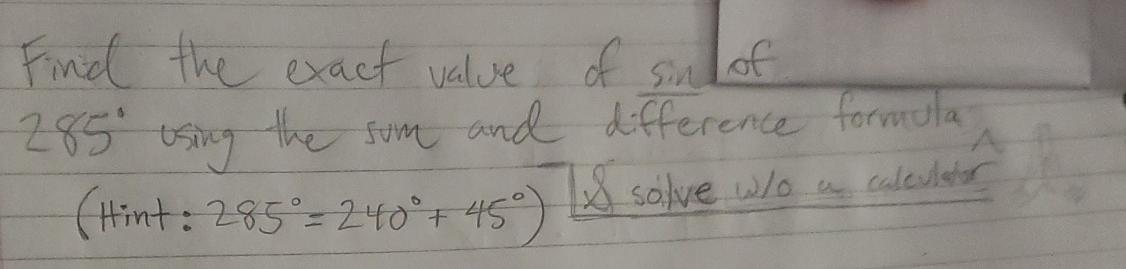 Find the exact value of sin of
285° using the sum and difference formula
(Hint: 285° = 240° + 45°) & solve w/o a calculator